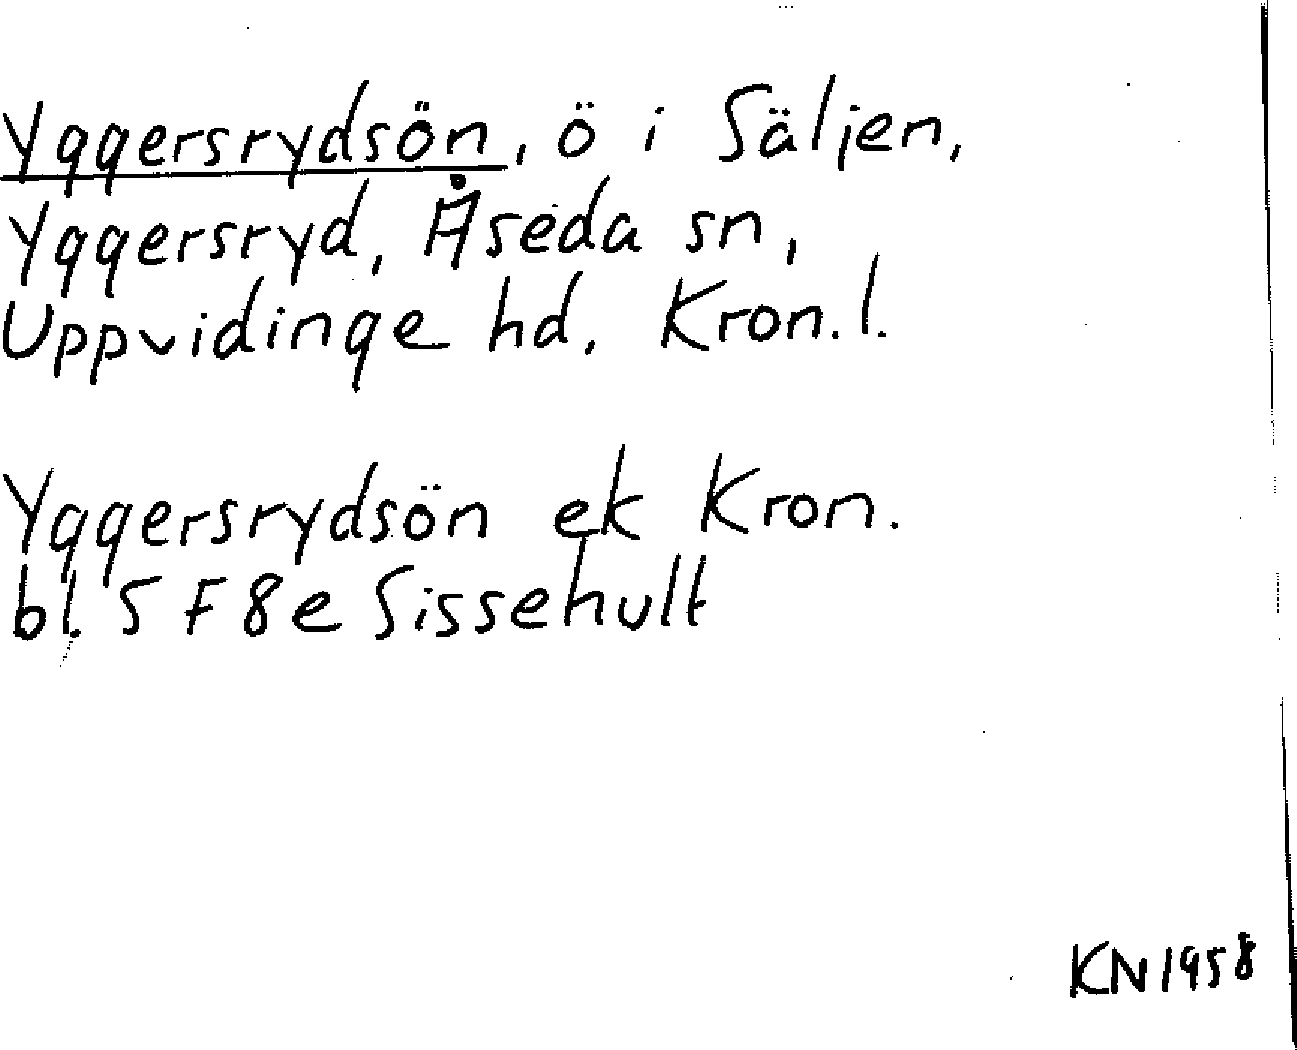 Yggersrydsön, ö i Säljen,
Yggersryd, Åseda sn,
Uppvidinge hd. Kron.l.
Yggersrydsön ek Kron.
bl. 5 F 8 e Sissehult
KN 1958